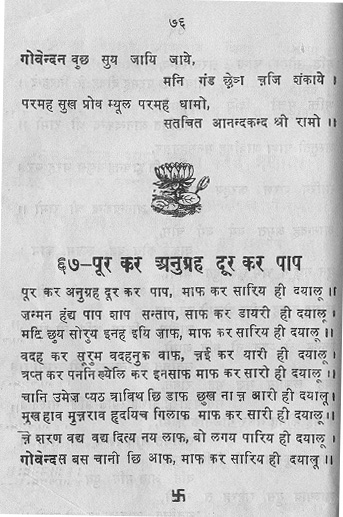 ७६
गोवेन्दन वुछ सुय जायि जाये,
मनि गंड छेत्रा न्नजि शंकाये ।
परमह सुख प्रोव म्यूल परमह धामो,
सतचित आनन्दकन्द श्री रामो ।।
६७–पूर कर अनुग्रह दूर कर पाप
पूर कर अनुग्रह दूर कर पाप, माफ कर सारिय ही दयालू ।।
जन्मन हुंद्य पाप शाप सन्ताप, साफ कर डायरी ही दयालू ।
मटि छुय सोरुय इनह इयि जाफ, माफ कर सारिय ही दयालू ।।
वदह कर सूरुम वदहनुक वाफ, न्नई कर यारी ही दयालू ।
त्रप्त कर पननि ख्येलि कर इनसाफ माफ कर सारी ही दयालू ।।
चानि उमेज प्यठ त्राविथ छि डाफ छुख ना न्न आरी ही दयालू ।
मुख हाव मुन्नराव हृदयिच गिलाफ माफ कर सारी ही दयालू ।।
न्ने शरण वद्य वद्य दित्य नय लाफ, बो लगय पारिय ही दयालू ।
गोवेन्दस बस चानी छि आफ, माफ कर सारिय ही दयालू ।।
卐